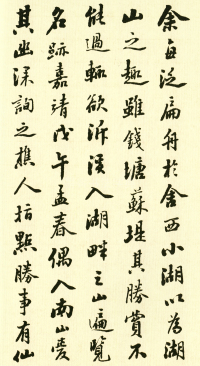 余每泛扁舟於舍西小湖以為湖
山之趣雖錢塘蘇堤其勝賞不
能過輒欲泝溪入湖畔之山遍覽
名跡嘉靖戊午孟春偶入南山愛
其幽深詢之樵人指點勝事有仙